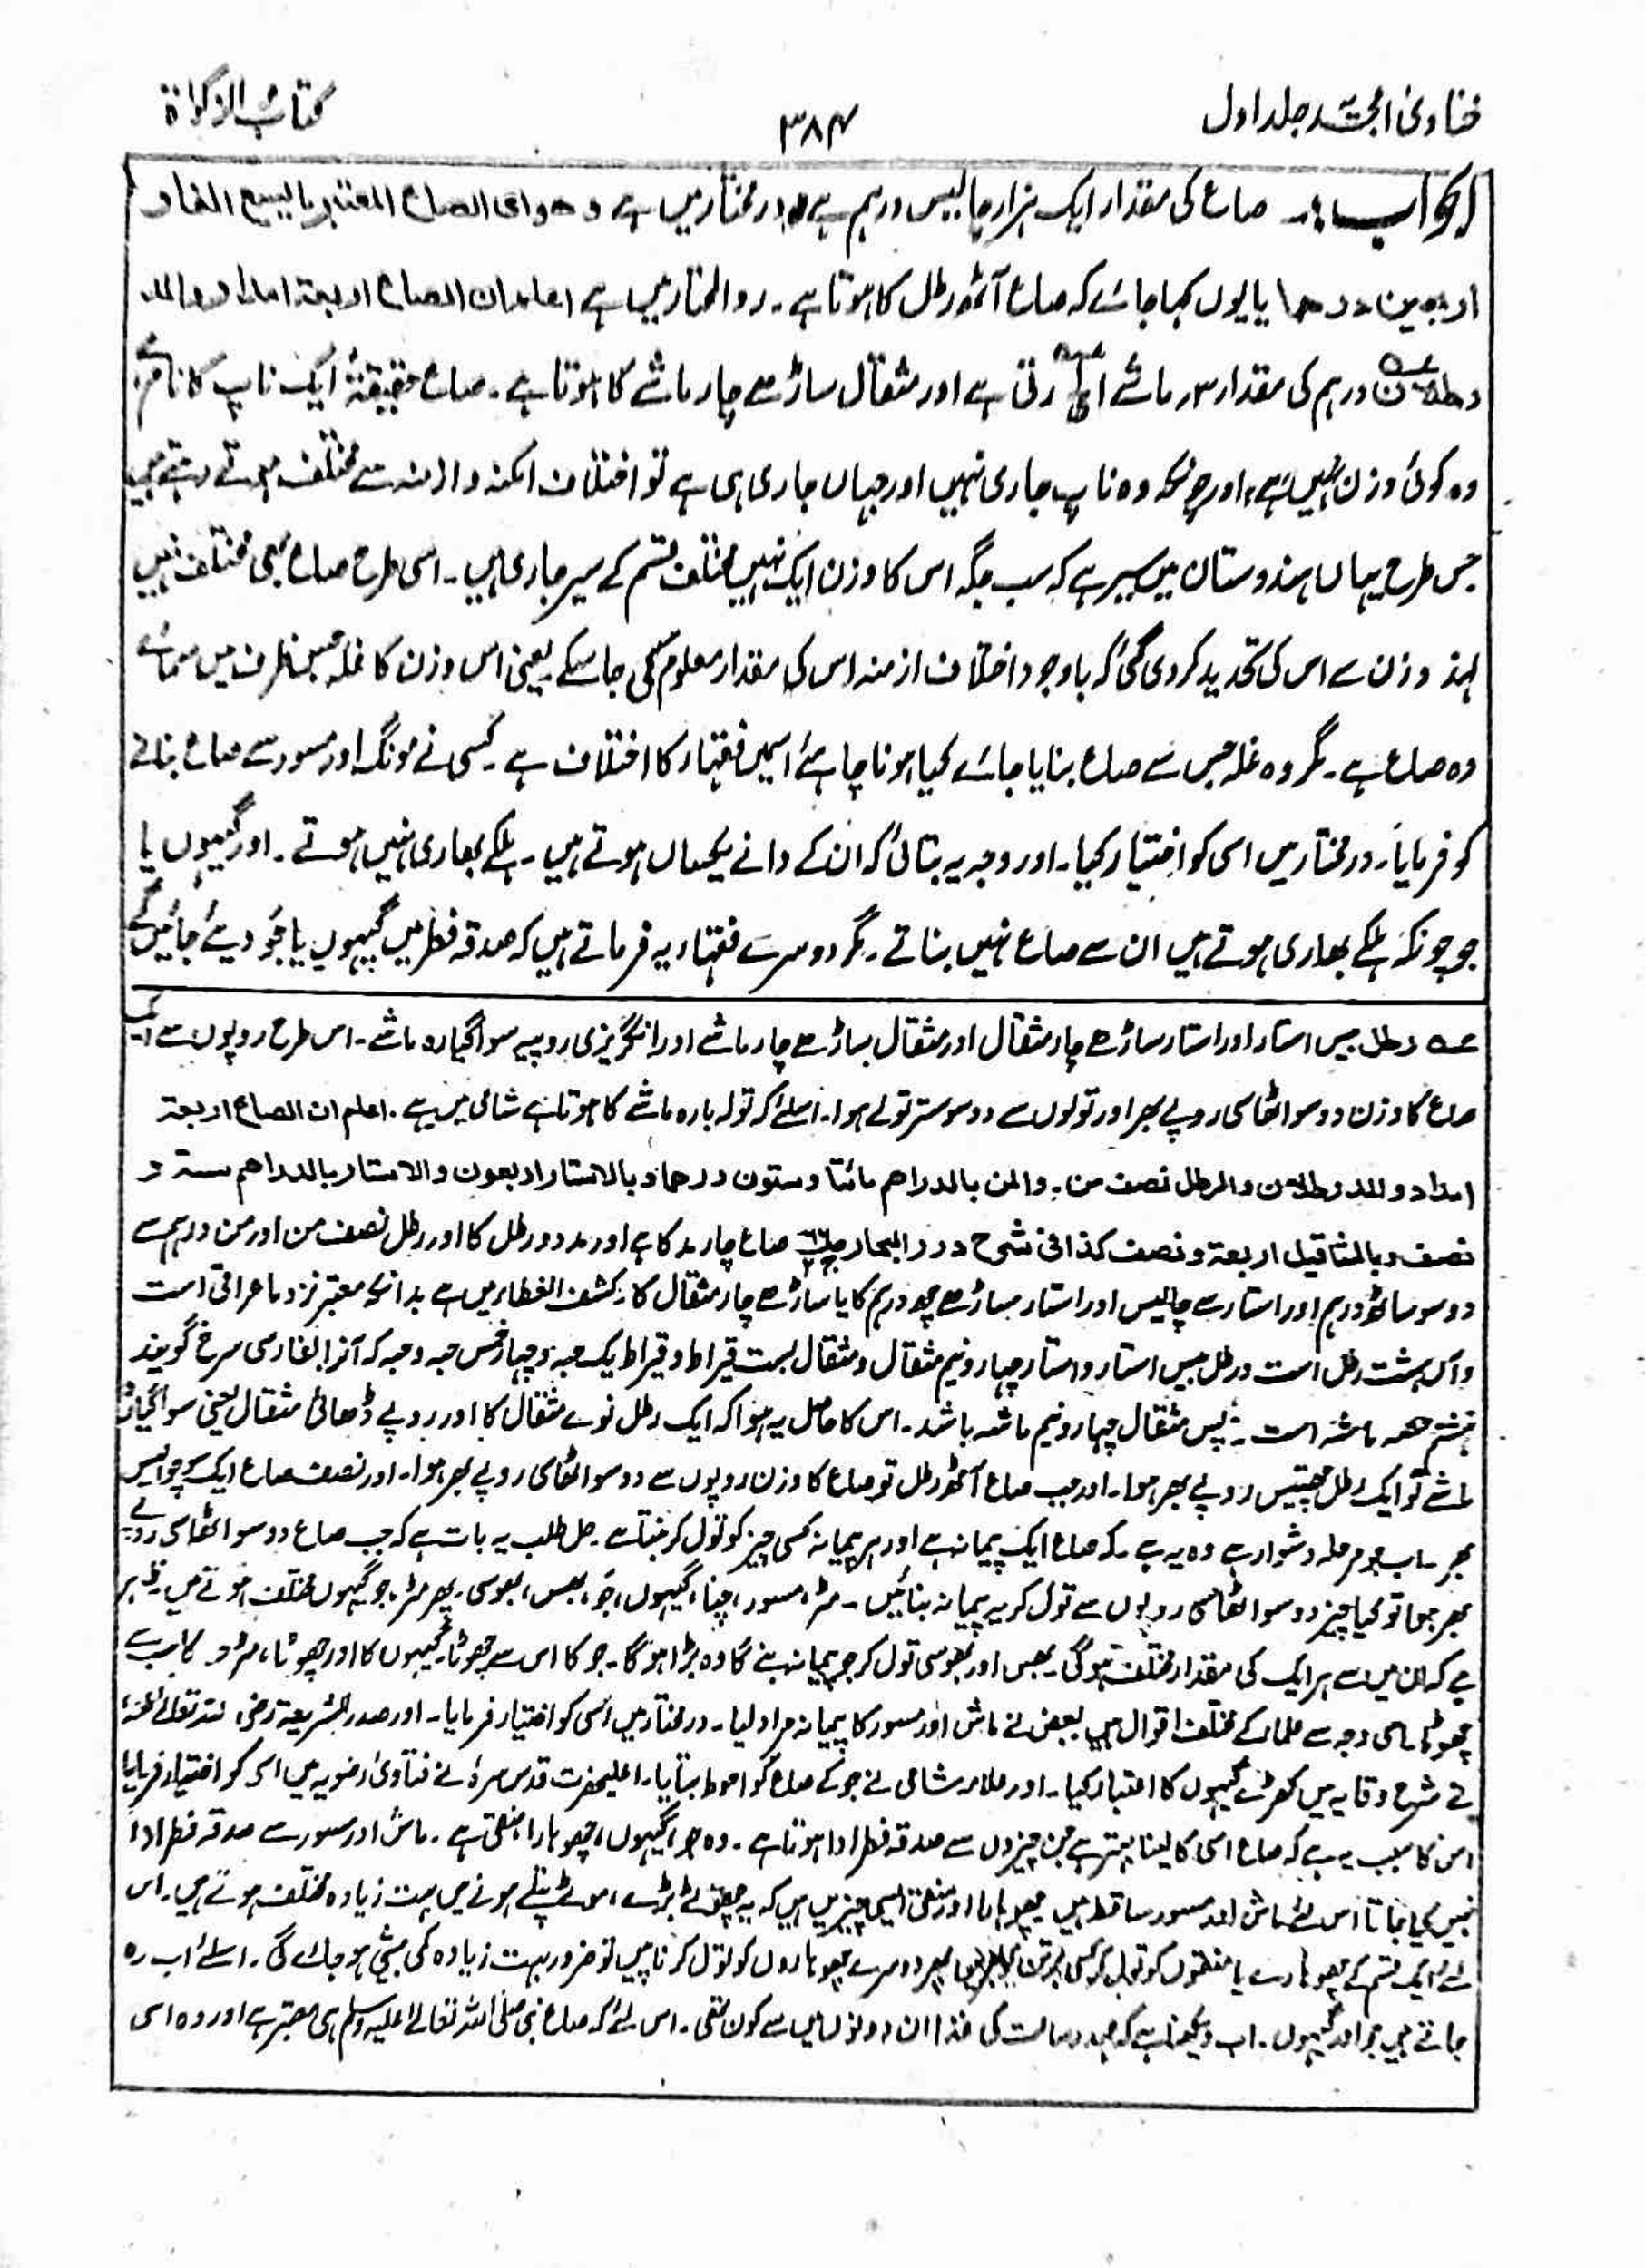 فتاویٰ امجدیہ جلد اول
۳۸۴
کتاب الزکوٰۃ
الجواب:۔ صاع کی مقدار ایک ہزار چالیس درہم ہے، درمختار میں ہے وھو ای الصاع المعتبر ما یسع الفا و
اربعین درھما یا یوں کہا جائے کہ صاع آٹھ رطل کا ہوتا ہے۔ ردالمحتار میں ہے اعلم ان الصاع اربعۃ امداد والمد
رطلان درہم کی مقدار ۳ ماشے رتی ہے اور مثقال ساڑھے چار ماشے کا ہوتا ہے۔ صاع حقیقۃً ایک ناپ کا نام ہے
وہ کوئی وزن نہیں ہے، اور چونکہ وہ ناپ جاری نہیں اور جہاں جاری ہی ہے تو اختلاف امکنہ و ازمنہ سے مختلف ہوتے رہتے ہیں
جس طرح یہاں ہندوستان میں سیر ہے کہ سب جگہ اس کا وزن ایک نہیں مختلف قسم کے سیر جاری ہیں۔ اسی طرح صاع بھی مختلف ہیں
لہذا وزن سے اس کی تحدید کردی گئی کہ باوجود اختلاف ازمنہ اس کی مقدار معلوم کی جاسکے یعنی اس وزن کا غلہ جس ظرف میں سمائے
وہ صاع ہے۔ مگر وہ غلہ جس سے صاع بنایا جائے کیا ہونا چاہئے اسمیں فقہاء کا اختلاف ہے۔ کسی نے مونگ اور مسور سے صاع بنانے
کو فرمایا۔ درمختار میں اسی کو اختیار کیا۔ اور وجہ یہ بتائی کہ ان کے دانے یکساں ہوتے ہیں۔ ہلکے بھاری نہیں ہوتے۔ اور گیہوں یا
جو چونکہ ہلکے بھاری ہوتے ہیں ان سے صاع نہیں بناتے۔ مگر دوسرے فقہاء یہ فرماتے ہیں کہ صدقہ فطر میں گیہوں یا جَو دیئے جائیں گے
عہ رطل بیس استار اور استار ساڑھے چار مثقال اور مثقال ساڑھے چار ماشے اور انگریزی روپیہ سوا گیارہ ماشے۔ اس طرح روپوں سے ایک
صاع کا وزن دو سو اٹھاسی روپے بھر اور تولوں سے دو سو ستر تولے ہوا۔ اسلئے کہ تولہ بارہ ماشے کا ہوتا ہے شامی میں ہے۔ اعلم ان الصاع اربعۃ
امداد والمد رطلان والرطل نصف من، والمن بالدراھم مائتا وستون درھما وبالاستار اربعون والاستار بالدراھم ستۃ و
نصف وبالمثاقیل اربعۃ ونصف کذا فی شرح درر البحار صاع چار مد کا ہے اور مد دو رطل کا اور رطل نصف من اور من درہم سے
دو سو ساٹھ درہم اور استار سے چالیس اور استار ساڑھے چھ درہم کا یا ساڑھے چار مثقال کا۔ کشف الغطا میں ہے بدانکہ معتبر نزد ما عراقی است
و آں ہشت رطل است و رطل بیس استار و استار چہار و نیم مثقال و مثقال بست قیراط و قیراط یک حبہ و چہار خمس حبہ و حبہ کہ آنرا بفارسی سرخ گویند
ہشتم حصہ ماشہ است۔ پس مثقال چہار و نیم ماشہ باشد۔ اس کا حاصل یہ ہوا کہ ایک رطل نوے مثقال کا اور روپے ڈھائی مثقال یعنی سوا گیارہ
ماشے تو ایک رطل چھتیس روپے بھر ہوا۔ اور جب صاع آٹھ رطل تو صاع کا وزن روپوں سے دو سو اٹھاسی روپے بھر ہوا۔ اور نصف صاع ایک سو چوالیس روپے
بھر۔ اب جو مرحلہ دشوار ہے وہ یہ ہے۔ کہ صاع ایک پیمانہ ہے اور ہر پیمانہ کسی چیز کو تول کر بنتا ہے۔ حل طلب یہ بات ہے کہ جب صاع دو سو اٹھاسی روپے
بھر ہوا تو کیا چیز دو سو اٹھاسی روپوں سے تول کر یہ پیمانہ بنائیں۔ مٹر، مسور، چنا، گیہوں، جَو، بھس، بھوسی۔ پھر مٹر، جو گیہوں مختلف ہوتے ہیں۔ ظاہر
ہے کہ ان میں سے ہر ایک کی مقدار مختلف ہوگی۔ بھس اور بھوسی تول کر جو پیمانہ بنے گا وہ بڑا ہوگا۔ جو کا اس سے چھوٹا، گیہوں کا اور چھوٹا، مٹر کا سب سے
چھوٹا۔ اسی وجہ سے علماء کے مختلف اقوال ہیں بعض نے ماش اور مسور کا پیمانہ مراد لیا۔ درمختار میں اسی کو اختیار فرمایا۔ اور صدر الشریعۃ رضی اللہ تعالےٰ عنہ
نے شرح وقایہ میں کھرے گیہوں کا اعتبار کیا۔ اور علامہ شامی نے جو کے صاع کو احوط بتایا۔ اعلیحضرت قدس سرہٗ نے فتاویٰ رضویہ میں اسی کو اختیار فرمایا
اس کا سبب یہ ہے کہ صاع اسی کا لینا بہتر ہے جن چیزوں سے صدقہ فطر ادا ہوتا ہے۔ وہ جو، گیہوں، چھوہارا، منقیٰ ہے۔ ماش اور مسور سے صدقہ فطر ادا
نہیں کیا جاتا اس لئے ماش اور مسور ساقط ہیں چھوہارا اور منقیٰ ایسی چیزیں ہیں کہ یہ چھوٹے بڑے، موٹے پتلے ہونے میں بہت زیادہ مختلف ہوتے ہیں۔ اس
لئے ایک قسم کے چھوہارے یا منقوں کو تول کر کسی برتن پھر دوسرے چھوہاروں کو تول کر ناپیں تو ضرور بہت زیادہ کمی بیشی ہو جائے گی۔ اسلئے اب رہ
جاتے ہیں جو اور گیہوں۔ اب دیکھنا ہے کہ عہد رسالت کی غذا ان دونوں میں سے کون تھی۔ اس لئے کہ صاع نبی صلی اللہ تعالےٰ علیہ وسلم ہی معتبر ہے اور وہ اسی